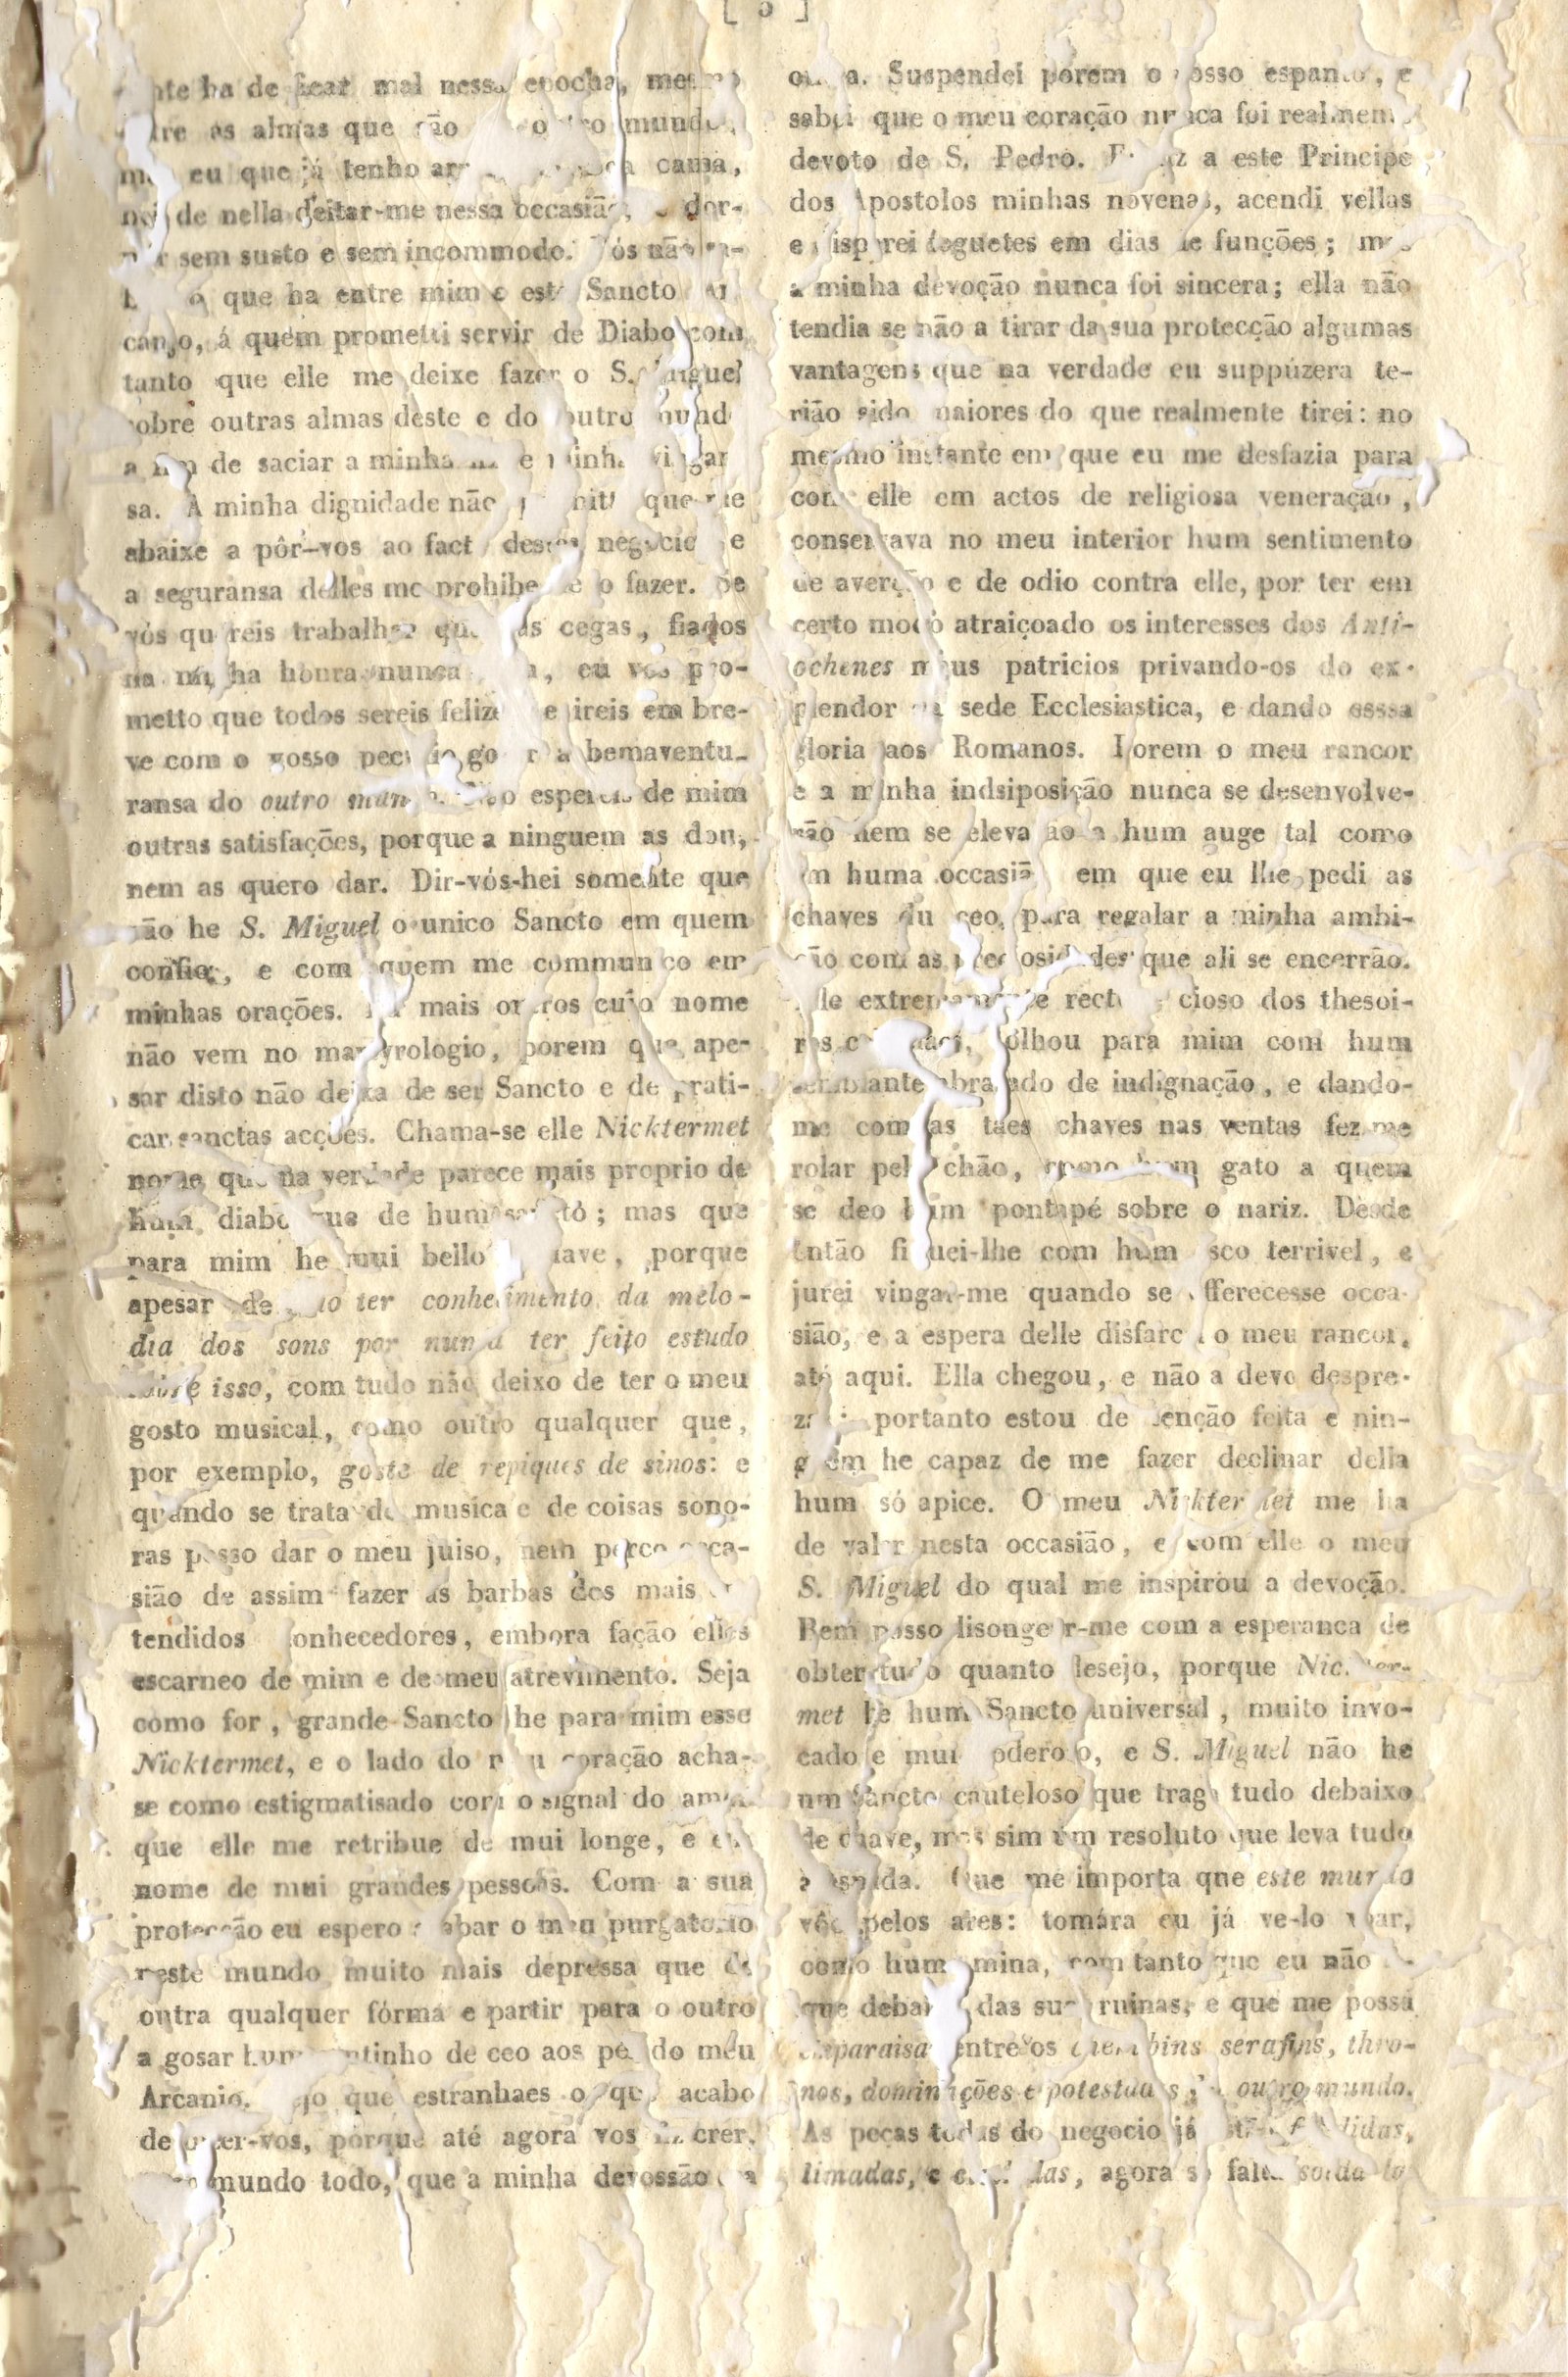 ha de ficar mal nessa epocha, mesmo
as almas que são mundo,
eu que já tenho cama,
de nella deitar-me nessa occasião, e dor-
sem susto e sem incommodo. Vós não
que ha entre mim e este Sancto
canjo, á quem prometti servir de Diabo com
tanto que elle me deixe fazer o S. Miguel
sobre outras almas deste e do outro mundo
a fim de saciar a minha e minha vingan
sa. A minha dignidade não permitte que me
abaixe a pôr-vos ao facto destes negocios e
a seguransa delles me prohibe de o fazer. Se
vós quereis trabalhar ás cegas, fiados
na minha honra nunca eu vos pro-
metto que todos sereis felizes e ireis em bre-
ve com o vosso peculio gosar a bemaventu-
ransa do outro mundo. Não espereis de mim
outras satisfações, porque a ninguem as dou,
nem as quero dar. Dir-vós-hei somente que
não he S. Miguel o unico Sancto em quem
confio, e com quem me communico em
minhas orações. Ha mais outros cujo nome
não vem no martyrologio, porem que ape-
sar disto não deixa de ser Sancto e de prati-
car sanctas acções. Chama-se elle Nicktermet
nome que na verdade parece mais proprio de
hum diabo que de hum sancto; mas que
para mim he mui bello e suave, porque
apesar de não ter conhecimento da melo-
dia dos sons por nunca ter feito estudo
sobre isso, com tudo não deixo de ter o meu
gosto musical, como outro qualquer que,
por exemplo, goste de repiques de sinos: e
quando se trata de musica e de coisas sono-
ras posso dar o meu juiso, nem perco occa-
sião de assim fazer ás barbas dos mais en
tendidos conhecedores, embora fação elles
escarneo de mim e de meu atrevimento. Seja
como for, grande Sancto he para mim esse
Nicktermet, e o lado do meu coração acha-
se como estigmatisado com o signal do amor
que elle me retribue de mui longe, e em
nome de mui grandes pessoas. Com a sua
protecção eu espero acabar o meu purgatorio
neste mundo muito mais depressa que de
outra qualquer fórma e partir para o outro
a gosar hum cantinho de ceo aos pés do meu
Arcanjo. Vejo que estranhaes o que acabo
de dizer-vos, porque até agora vos fiz crer,
mundo todo, que a minha devossão era
outra. Suspendei porem o vosso espanto, e
sabei que o meu coração nunca foi realmente
devoto de S. Pedro. Fiz a este Principe
dos Apostolos minhas novenas, acendi vellas
e disparei foguetes em dias de funções; mas
a minha devoção nunca foi sincera; ella não
tendia se não a tirar da sua protecção algumas
vantagens que na verdade eu suppúzera te-
rião sido maiores do que realmente tirei: no
mesmo instante em que eu me desfazia para
com elle em actos de religiosa veneração,
conservava no meu interior hum sentimento
de averção e de odio contra elle, por ter em
certo modo atraiçoado os interesses dos Anti-
ochenes meus patricios privando-os do ex-
plendor da sede Ecclesiastica, e dando esssa
gloria aos Romanos. Porem o meu rancor
e a minha indsiposição nunca se desenvolve-
rão nem se elevarão a hum auge tal como
em huma occasião em que eu lhe pedi as
chaves du ceo, para regalar a minha ambi-
ção com as preciosidades que ali se encerrão.
Elle extremamente recto e cioso dos thesoi-
ros olhou para mim com hum
semblante abrasado de indignação, e dando-
me com as taes chaves nas ventas fez me
rolar pelo chão, como hum gato a quem
se deo hum pontapé sobre o nariz. Desde
então fiquei-lhe com hum asco terrivel, e
jurei vingar-me quando se offerecesse occa-
sião, e a espera delle disfarcei o meu rancor,
até aqui. Ella chegou, e não a devo despre-
zar; portanto estou de tenção feita e nin-
guem he capaz de me fazer declinar della
hum só apice. O meu Nicktermet me ha
de valer nesta occasião, e com elle o meu
S. Miguel do qual me inspirou a devoção.
Bem posso lisongear-me com a esperanca de
obter tudo quanto desejo, porque Nickter-
met he hum Sancto universal, muito invo-
cado e mui poderoso, e S. Miguel não he
um Sancto cauteloso que traga tudo debaixo
de chave, mas sim um resoluto que leva tudo
á espada. Que me importa que este mundo
vôe pelos ares: tomára eu já ve-lo voar,
como huma mina, com tanto que eu não fi-
que debaixo das suas ruinas, e que me possa
emparaisar entre os cherubins serafins, thro-
nos, dominações e potestades do outro mundo.
As peças todas do negocio já estão fundidas,
limadas, e agora só falta solda-la